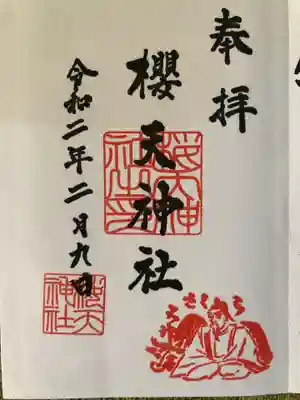 奉拝
櫻天神社
令和二年二月九日
櫻天神社印
櫻天神社
さくら